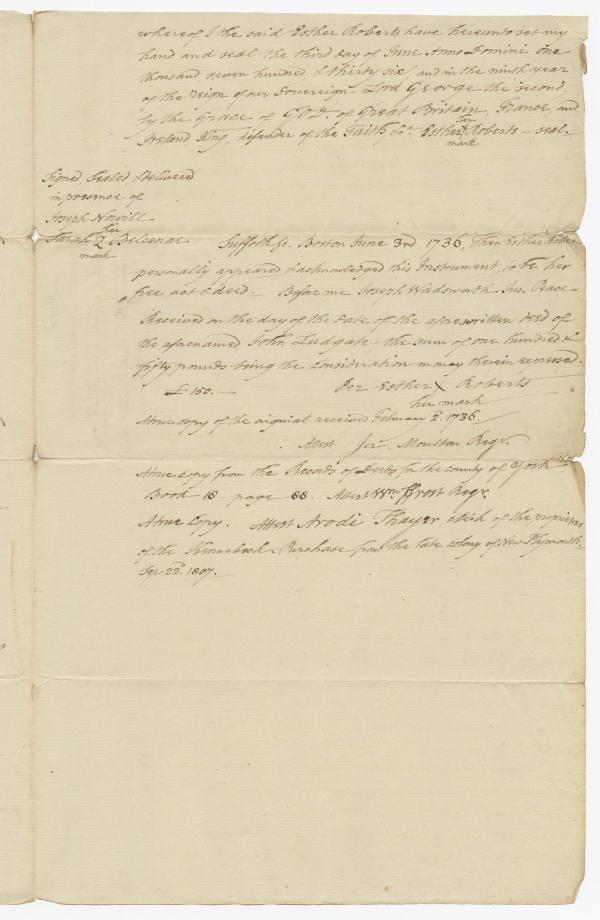 whereof I the said Esther Roberts have hereunto set my
hand and seal the third day of June Anno Domini One
thousand seven hundred, & thirty six, and in the ninth year
of the reign of our Sovereign Lord George the second,
by the Grace of GOD, of Great Britain, France, and
Ireland King, defender of the Faith &c. Esther X Roberts – seal.
her
mark
Signed, Sealed, & delivered
in presence of
Joseph
her
Sarah Belcenar
mark
Suffolk ss. Boston June 3rd 1736, Then Esther Roberts
personally appeared & acknowledged this Instrument, to be her
free act & deed. – Before me Joseph Wadsworth Jus. Peace –
Received on the day of the date of the afore written deed of
the aforenamed John Ludgate, the sum of one hundred &
fifty pounds being the consideration money therein expressed.
£150. — Per Esther X Roberts
her mark
A true copy of the original received February 2. 1736.
Attest Jer. Moulton Regr.
A true copy from the Records of Deeds for the county of York
Book 18 – page 88. Attest Wm Frost Regr.
A true Copy. Attest Arodi Thayer clerk of the proprietors
of the Kennebeck Purchase from the late colony of New Plymouth.
22d. 1807.